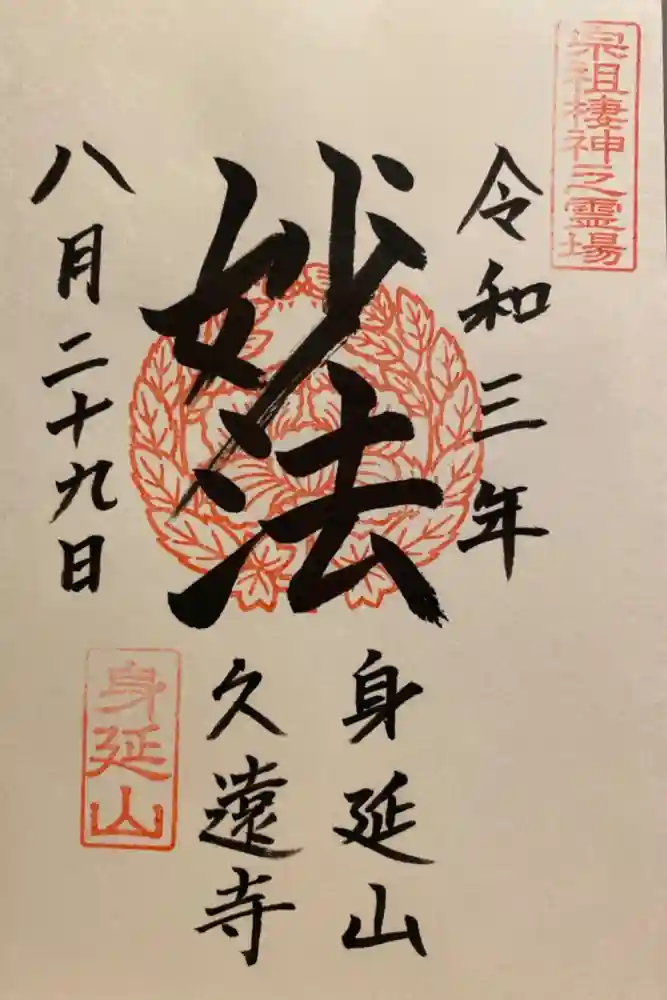 宗祖棲神之霊場
令和三年
妙法
八月二十九日
身延山
久遠寺
身延山